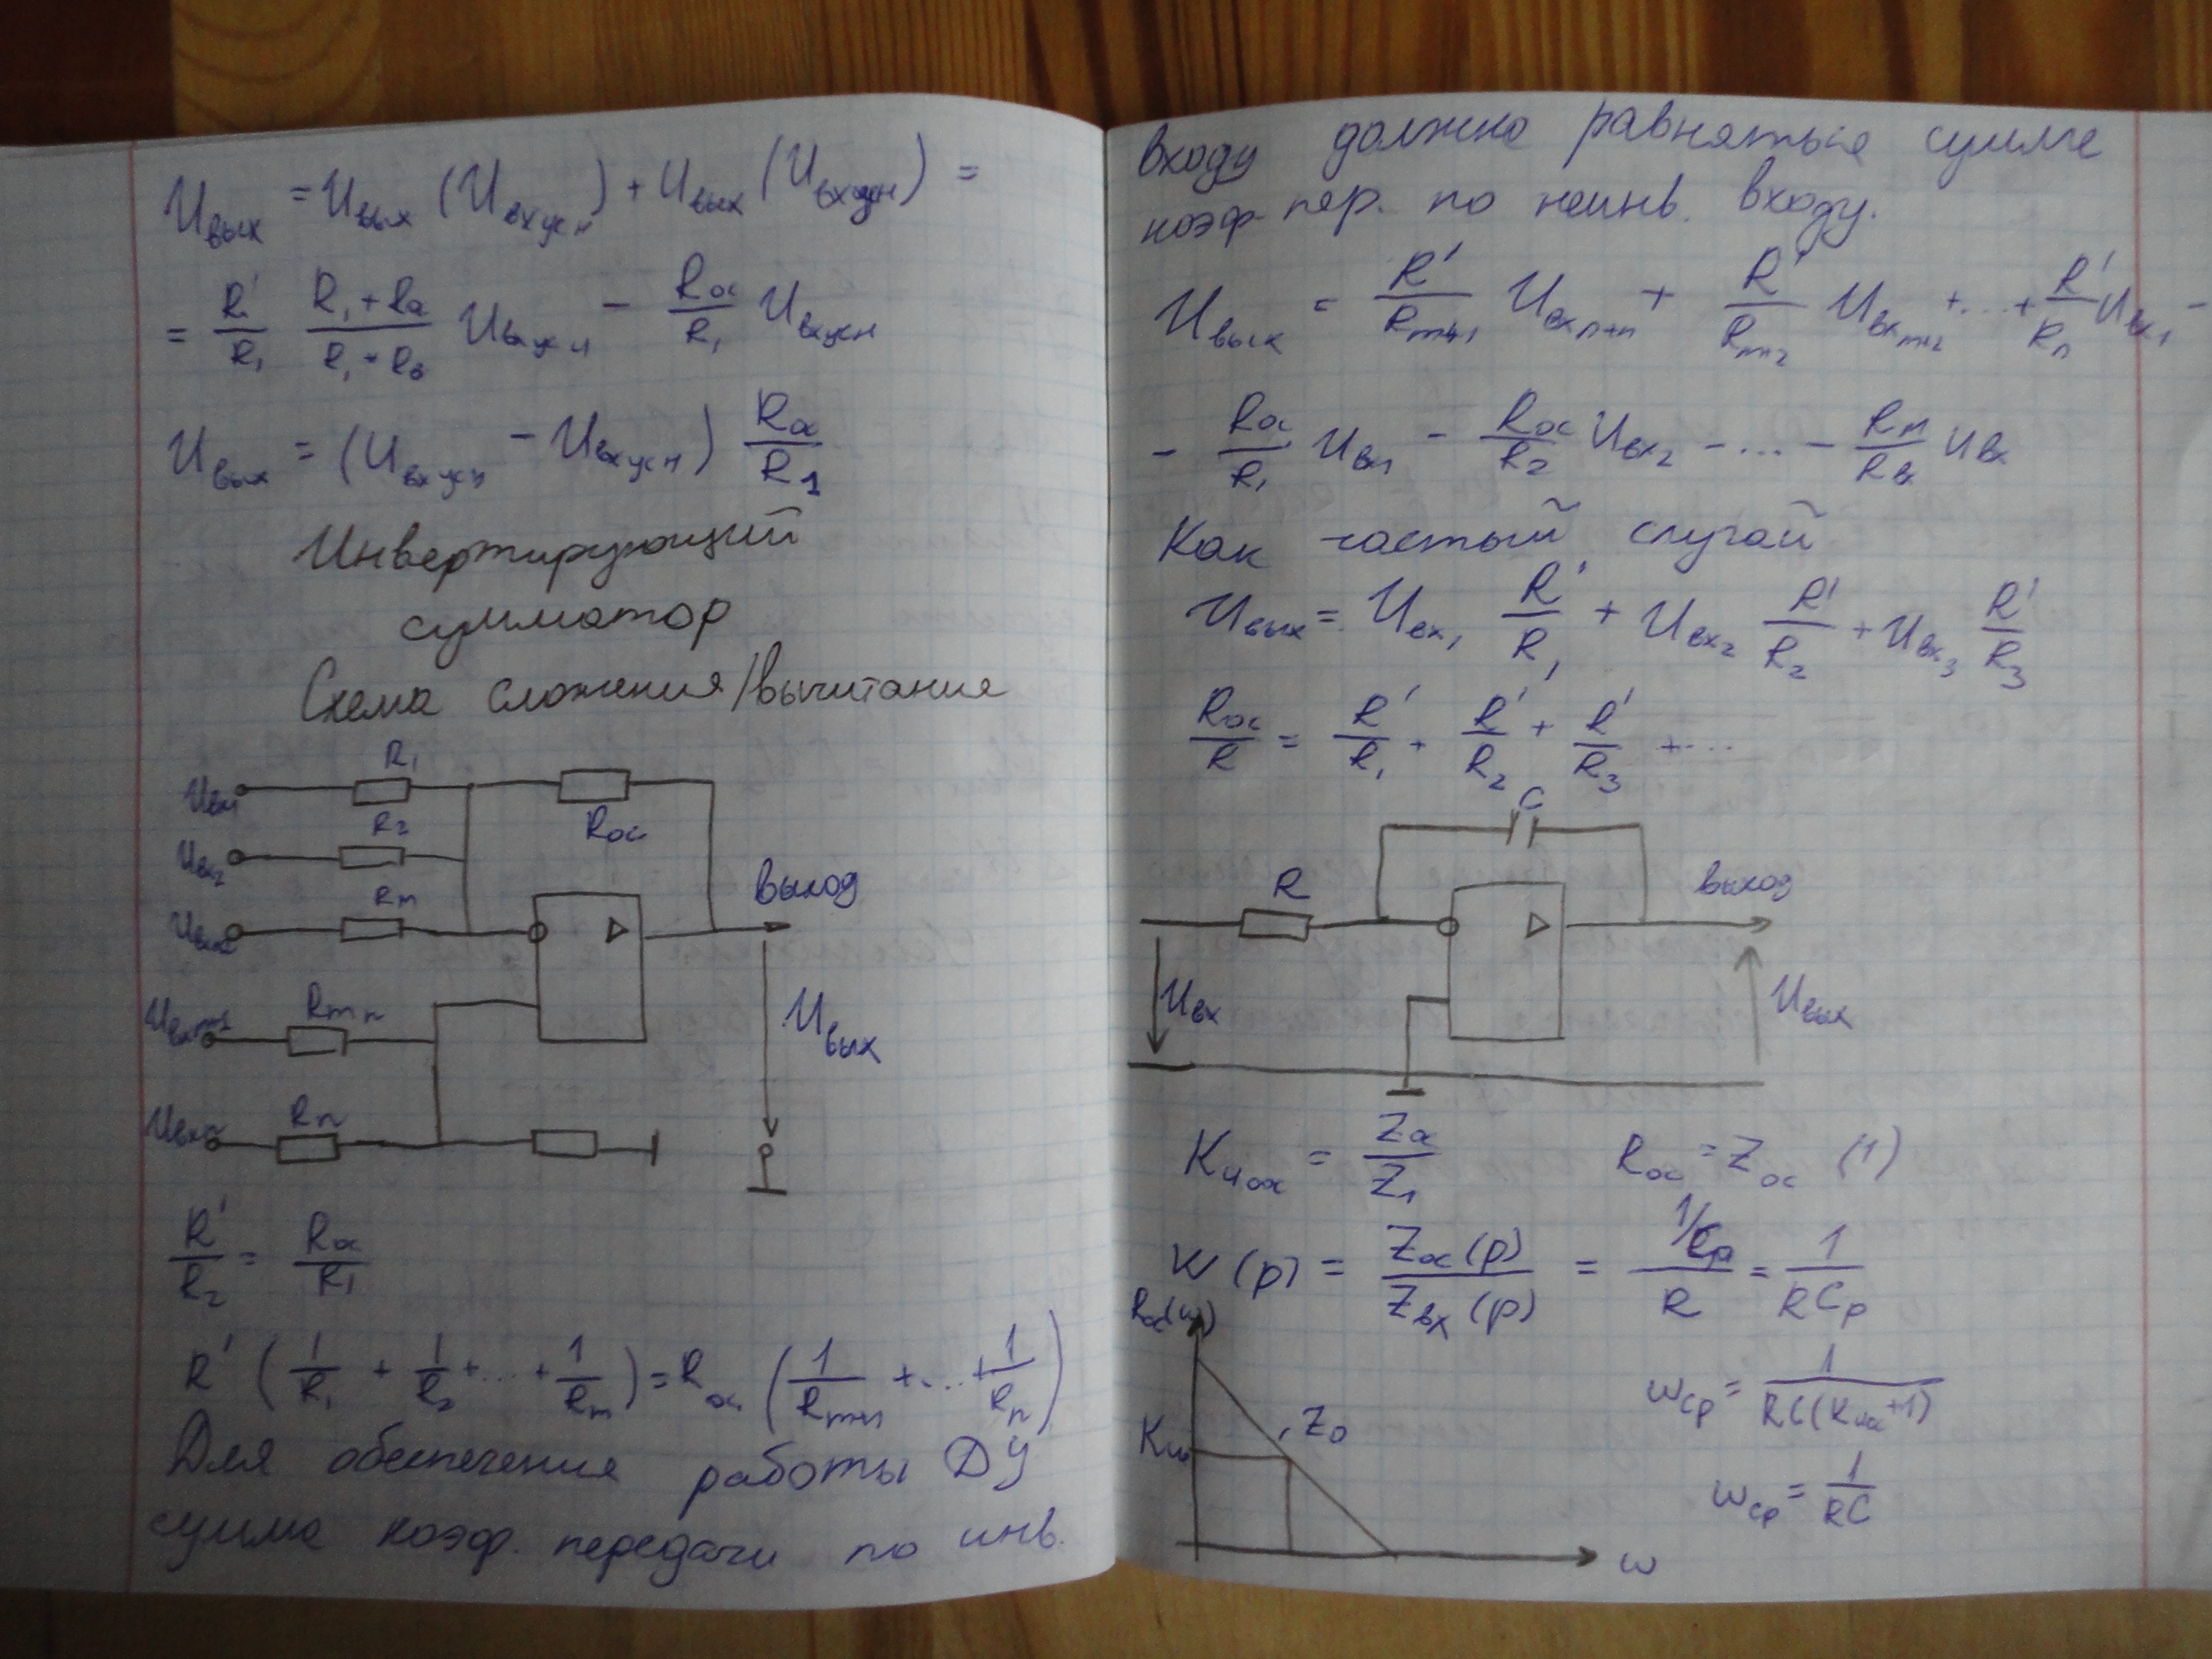 Uвых = Uвых (Uвх усн) + Uвых (Uвх усн) =
= R'/R₁ (R₁ + Rос)/(R₁ + Rв) Uвх усн − Rос/R₁ Uвх усн
Uвых = (Uвх усн − Uвх усн) Rос/R1
Инвертирующий
сумматор
Схема сложения/вычитание
R₁
Uвх1
R₂
Rос
Uвх₂
выход
Rm
Rmn
Uвых
Rn
Uвхn
R'/R₂ = Rос/R₁
R' (1/R₁ + 1/R₂ +...+ 1/Rm) = Rос (1/Rm+1 +...+ 1/Rn)
Для обеспечения работы ДУ
сумма коэф. передачи по инв.
входу должно равняться сумме
коэф пер. по неинв. входу.
Uвых = R'/Rm+1 Uвхn+n + R'/Rm+2 Uвхm+2 +...+ R'/Rn Uвх₁ −
− Rос/R₁ Uвх1 − Rос/R₂ Uвх₂ − ... − Rm/Rв Uвх
Как частый случай
Uвых = Uвх₁ R'/R₁ + Uвх₂ R'/R₂ + Uвх₃ R'/R₃
Rос/R = R'/R₁ + R'/R₂ + R'/R₃ +...
C
R
выход
Uвх
Uвых
Kиос = Zос/Z₁ Rос = Zос (1)
W(p) = Zос(p)/Zвх(p) = (1/Cp)/R = 1/RCp
ωср = 1/RC(Kиос+1)
Kио
Z₀
ωср = 1/RC
ω